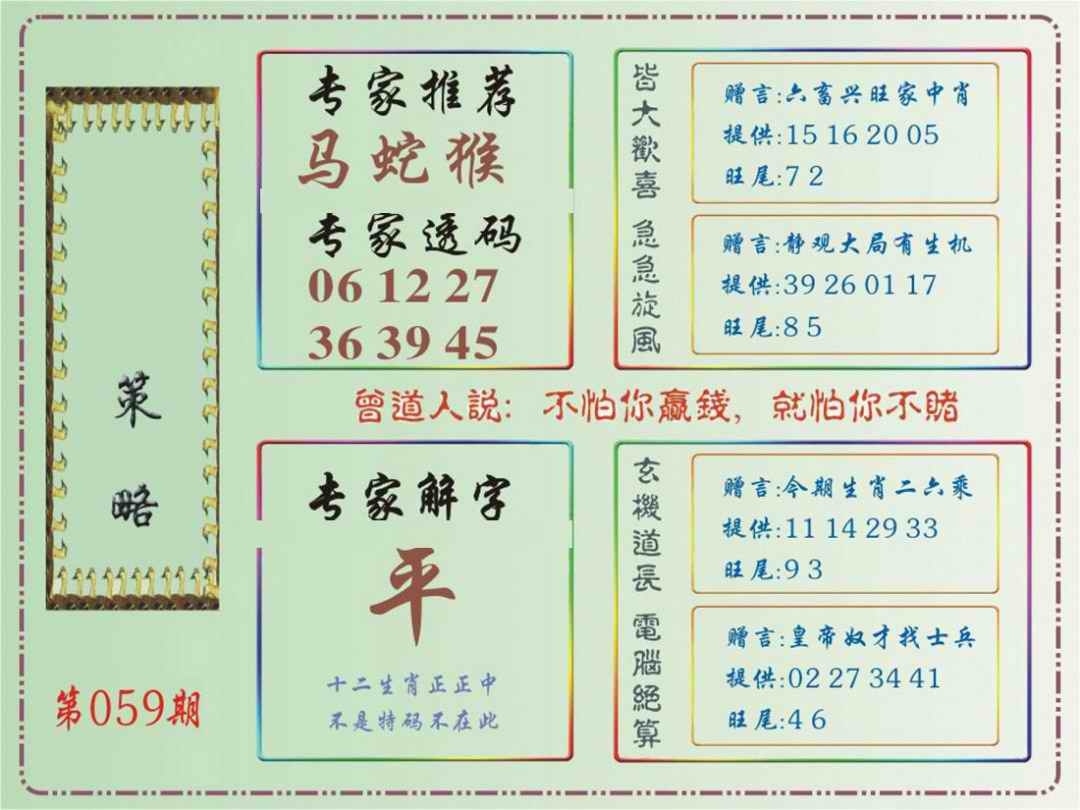 策略
第059期
专家推荐
马蛇猴
专家透码
06 12 27
36 39 45
皆大歡喜
赠言:六畜兴旺家中肖
提供:15 16 20 05
旺尾:7 2
急急旋风
赠言:静观大局有生机
提供:39 26 01 17
旺尾:8 5
曾道人説: 不怕你贏錢, 就怕你不賭
专家解字
平
十二生肖正正中
不是特码不在此
玄機道長
赠言:今期生肖二六乘
提供:11 14 29 33
旺尾:9 3
電腦絕算
赠言:皇帝奴才找士兵
提供:02 27 34 41
旺尾:4 6